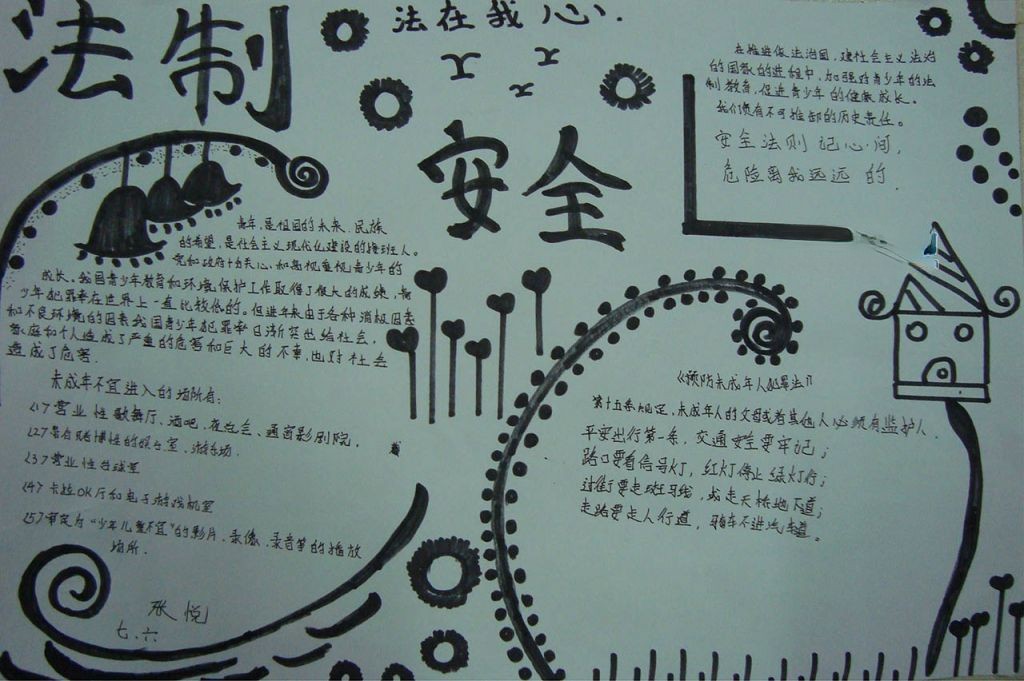 法制
法在我心.
安全
在推进依法治国，建社会主义法治
的国家的进程中，加强对青少年的法
制教育，促进青少年的健康成长。
我们负有不可推卸的历史责任。
安全法则记心间，
危险离我远远的.
青年，是祖国的未来，民族
的希望，是社会主义现代化建设的接班人。
党和政府十分关心，和重视重视青少年的
成长。我国青少年教育和环境保护工作取得了很大的成绩，青
少年犯罪率在世界上一直比较低的。但进年来由于各种消极因素
和不良环境的因素我国青少年犯罪率日渐突出给社会，
家庭和个人造成了严重的危害和巨大的不幸，也对社会
造成了危害.
未成年不宜进入的场所有:
<1>营业性歌舞厅、酒吧，夜总会、通宵影剧院，
<2>带有赌博性的娱乐室、游乐场.
<3>营业性台球室
<4>卡拉OK厅和电子游戏机室
<5>审定为“少年儿童不宜”的影片、录像、录音等的播放
场所.
张悦
七.六
《预防未成年人犯罪法》
第十五条规定，未成年人的父母或者其他人必须有监护人.
平安出行第一条，交通安全要牢记；
路口要看信号灯，红灯停止绿灯行；
过街要走斑马线，或走天桥地下道；
走路要走人行道，骑车不进汽车道。